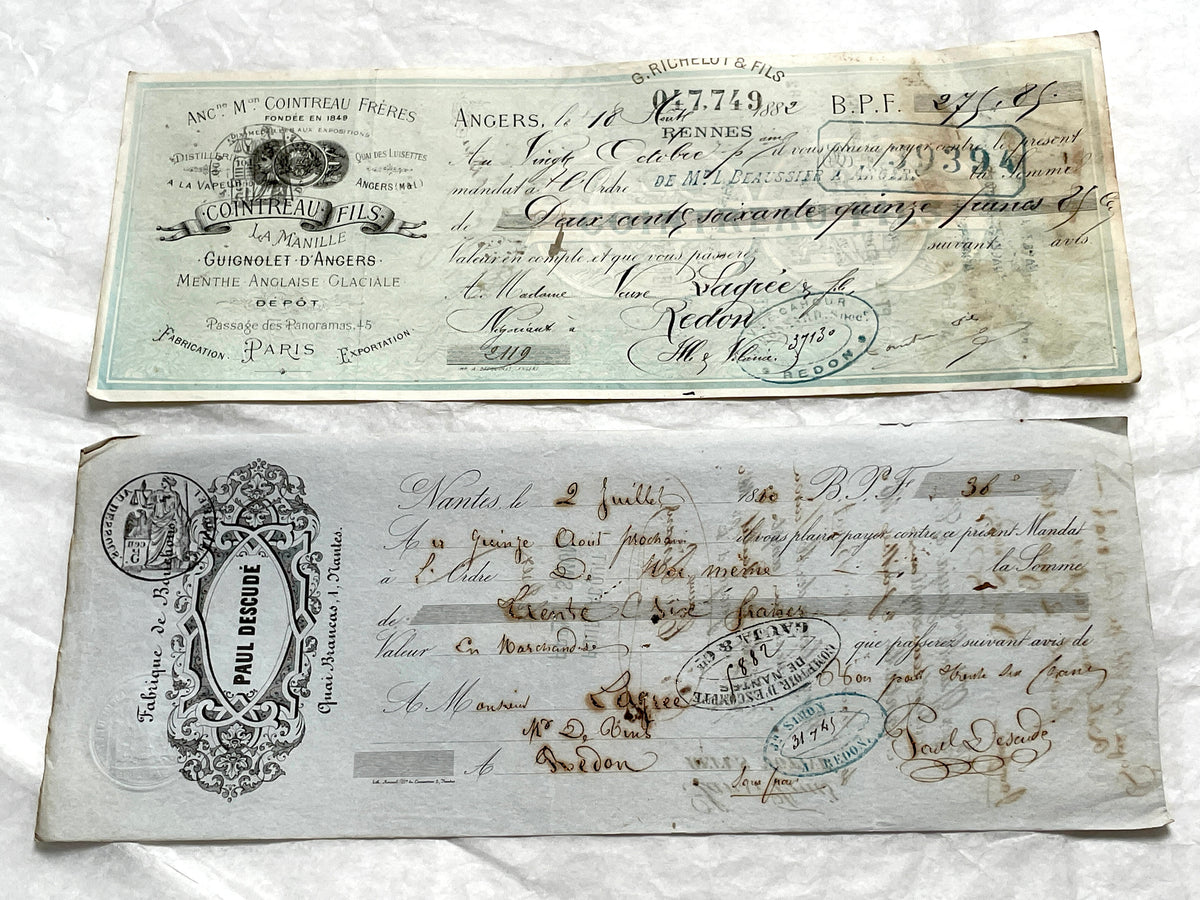 ANCne Mon COINTREAU FRÈRES
FONDÉE EN 1849
MEDAILLES AUX EXPOSITIONS
DISTILLERIE
A LA VAPEUR
QUAI DES LUISETTES
ANGERS (M&L)
COINTREAU FILS
LA MANILLE
GUIGNOLET D'ANGERS
MENTHE ANGLAISE GLACIALE
DÉPÔT
Passage des Panoramas, 45
FABRICATION. PARIS EXPORTATION
G. RICHELOT & FILS
047,749
RENNES
ANGERS, le 18 Août 1882 B.P.F. 275,85
Au Vingt Octobre pin il vous plaira payer contre le présent
39394
mandat à l'Ordre DE Mr L. BEAUSSIER A ANGERS la somme
de Deux cents soixante quinze francs 85 c
Valeur en compte et que vous passerez suivant avis
A Madame Veuve Lagrée & fils
Négociant à Redon
2119 Ille & Vilaine
CAHOUR
37130
REDON
Nantes, le 2 Juillet 1860 B.P.F. 36
Au Quinze Août prochain il vous plaira payer contre ce présent Mandat
à L'Ordre De Moi même la Somme
de Trente Six francs
Valeur En Marchandise que passerez suivant avis de
Bon pour trente six francs
A Monsieur Lagrée
Md De Vins
A Redon
sans frais
Paul Descudé
Fabrique de
PAUL DESCUDÉ
Quai Brancas, 1, Nantes.
GAUJA & Cie
6882
COMPTOIR D'ESCOMPTE
DE NANTES
31745
REDON